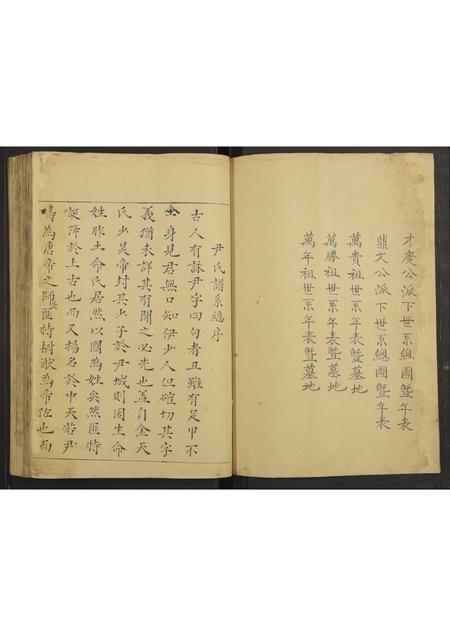 才慶公派下世系總圖暨年表
鼎文公派下世系總圖暨年表
萬貴祖世系年表暨墓地
萬勝祖世系年表暨墓地
萬年祖世系年表暨墓地
尹氏譜系總序
古人有詠尹字四句者丑雖有足甲不
全身見君無口知伊少人但確切其字
義猶未詳其有開之必先也蓋自金天
氏少昊帝封其少子於尹城則因生命
姓胙土命氏居然以國為姓矣然匪特
誕降於上古也而又揚名於中天若尹
疇為唐帝之師匪特樹猷為帝佐也而